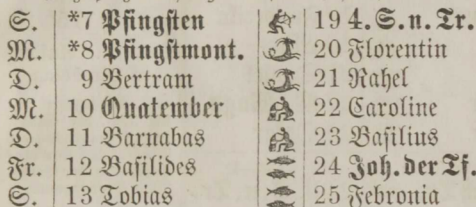 S. *7 Pfingsten 19 4. S. n. Tr.
M. *8 Pfingstmont. 20 Florentin
D. 9 Bertram 21 Rahel
M. 10 Quatember 22 Caroline
D. 11 Barnabas 23 Basilius
Fr. 12 Basilides 24 Joh. der Tf.
S. 13 Tobias 25 Febronia